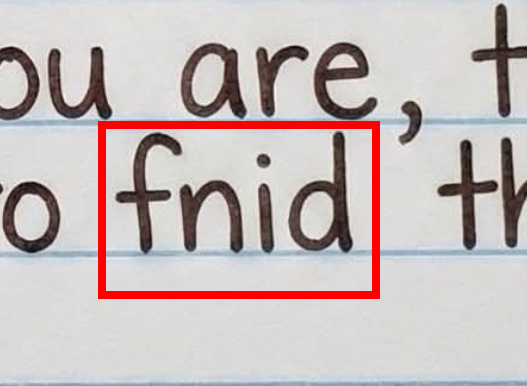 ou are, t
o fnid th